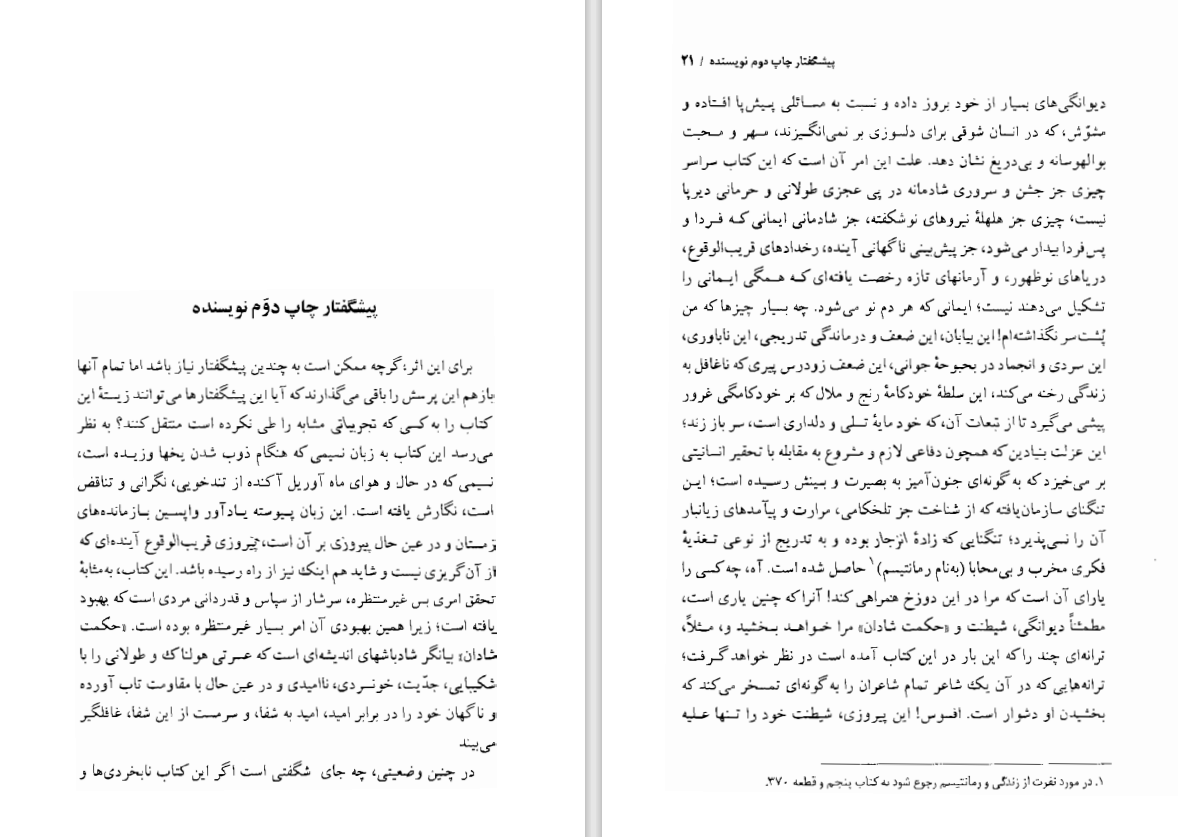 پیشگفتار چاپ دوّم نویسنده
برای این اثر،گرچه ممکن است به چندین پیشگفتار نیاز باشد اما تمام آنها
بازهم این پرسش را باقی می‌گذارند که آیا این پیشگفتارها می‌توانند زیستهٔ این
کتاب را به کسی که تجربیاتی مشابه را طی نکرده است منتقل کنند؟ به نظر
می‌رسد این کتاب به زبان نسیمی که هنگام ذوب شدن یخها وزیده است،
نسیمی که در حال و هوای ماه آوریل آکنده از تندخویی، نگرانی و تناقض
است، نگارش یافته است. این زبان پیوسته یادآور واپسین بازمانده‌های
زمستان و در عین حال پیروزی بر آن است، پیروزی قریب‌الوقوع آینده‌ای که
از آن گریزی نیست و شاید هم اینک نیز از راه رسیده باشد. این کتاب، به‌مثابهٔ
تحقق امری بس غیرمنتظره، سرشار از سپاس و قدردانی مردی است که بهبود
یافته است؛ زیرا همین بهبودی آن امر بسیار غیرمنتظره بوده است. «حکمت
شادان» بیانگر شادباشهای اندیشه‌ای است که عسرتی هولناک و طولانی را با
شکیبایی، جدّیت، خونسردی، ناامیدی و در عین حال با مقاومت تاب آورده
و ناگهان خود را در برابر امید، امید به شفا، و سرمست از این شفا، غافلگیر
می‌بیند
در چنین وضعیتی، چه جای شگفتی است اگر این کتاب نابخردی‌ها و
پیشگفتار چاپ دوم نویسنده / ۲۱
دیوانگی‌های بسیار از خود بروز داده و نسبت به مسائلی پیش‌پا افتاده و
مشوّش، که در انسان شوقی برای دلسوزی بر نمی‌انگیزند، مهر و محبت
بوالهوسانه و بی‌دریغ نشان دهد. علت این امر آن است که این کتاب سراسر
چیزی جز جشن و سروری شادمانه در پی عجزی طولانی و حرمانی دیرپا
نیست؛ چیزی جز هلهلهٔ نیروهای نوشکفته، جز شادمانی ایمانی که فردا و
پس‌فردا بیدار می‌شود، جز پیش‌بینی ناگهانی آینده، رخدادهای قریب‌الوقوع،
دریاهای نوظهور، و آرمانهای تازه رخصت یافته‌ای که همگی ایمانی را
تشکیل می‌دهند نیست؛ ایمانی که هر دم نو می‌شود. چه بسیار چیزها که من
پُشت‌سر نگذاشته‌ام! این بیابان، این ضعف و درماندگی تدریجی، این ناباوری،
این سردی و انجماد در بحبوحهٔ جوانی، این ضعف زودرس پیری که ناغافل به
زندگی رخنه می‌کند، این سلطهٔ خودکامهٔ رنج و ملال که بر خودکامگی غرور
پیشی می‌گیرد تا از تبعات آن، که خود مایهٔ تسلی و دلداری است، سر باز زند؛
این عزلت بنیادین که همچون دفاعی لازم و مشروع به مقابله با تحقیر انسانیتی
بر می‌خیزد که به گونه‌ای جنون‌آمیز به بصیرت و بینش رسیده است؛ این
تنگنای سازمان‌یافته که از شناخت جز تلخکامی، مرارت و پیآمدهای زیانبار
آن را نمی‌پذیرد؛ تنگنایی که زادهٔ انزجار بوده و به تدریج از نوعی تغذیهٔ
فکری مخرب و بی‌محابا (به‌نام رمانتیسم)۱ حاصل شده است. آه، چه کسی را
یارای آن است که مرا در این دوزخ همراهی کند! آنرا که چنین یاری است،
مطمئناً دیوانگی، شیطنت و «حکمت شادان» مرا خواهد بخشید و، مثلاً،
ترانه‌ای چند را که این بار در این کتاب آمده است در نظر خواهد گرفت؛
ترانه‌هایی که در آن یک شاعر تمام شاعران را به گونه‌ای تمسخر می‌کند که
بخشیدن او دشوار است. افسوس! این پیروزی، شیطنت خود را تنها علیه
۱. در مورد نفرت از زندگی و رمانتیسم رجوع شود به کتاب پنجم و قطعه ۳۷۰.